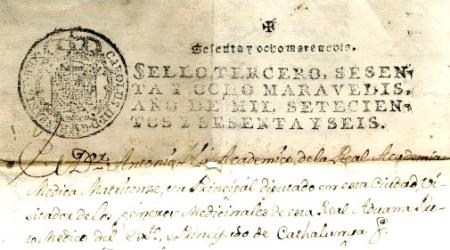 CAROLUS III D G
Sesenta y ocho marauedis.
SELLO TERCERO, SESEN-
TA Y OCHO MARAVEDIS,
AÑO DE MIL SETECIEN-
TOS Y SESENTA Y SEIS.
Dr. Antonio Academico, de la Real Academia
Medica Matritense, su Principal diputado en esta Ciudad Vi-
sitador de los generos Medicinales de esta Real Aduana Pro-
to Medico del y Principado de Cathalunya